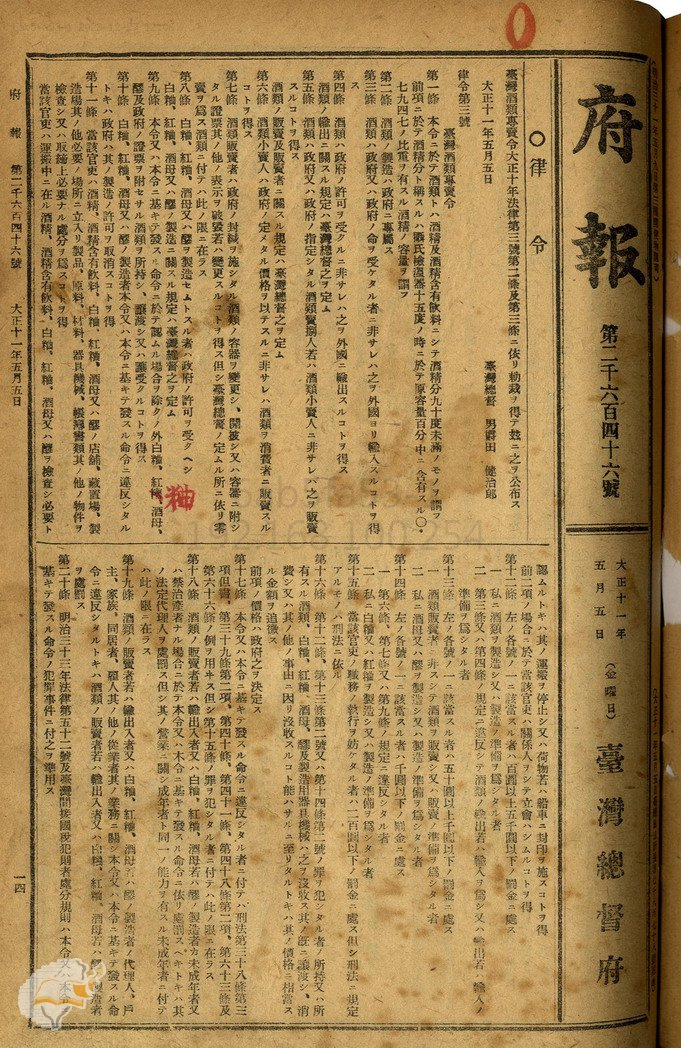 府報
第二千六百四十六號
大正十一年
五月五日
（金曜日）
臺灣總督府
〇律令
臺灣酒類專賣令大正十年法律第三號第二條及第三條ニ依リ勅裁ヲ得テ茲ニ之ヲ公布ス
大正十一年五月五日
臺灣總督 男爵田 健治郎
律令第三號
臺灣酒類專賣令
第一條 本令ニ於テ酒類トハ酒精及酒精含有飮料ニシテ酒精分九十度未滿ノモノヲ謂フ
前項ニ於テ酒精分ト稱スルハ攝氏檢溫器十五度ノ時ニ於テ原容量百分中ニ含有スル〇・
七九四七ノ比重ヲ有スル酒精ノ容量ヲ謂フ
第二條 酒類ノ製造ハ政府ニ專屬ス
第三條 酒類ハ政府又ハ政府ノ命ヲ受ケタル者ニ非サレハ之ヲ外國ヨリ輸入スルコトヲ得
ス
第四條 酒類ハ政府ノ許可ヲ受クルニ非サレハ之ヲ外國ニ輸出スルコトヲ得ス
酒類ノ輸出ニ關スル規定ハ臺灣總督之ヲ定ム
第五條 酒類ハ政府又ハ政府ノ指定シタル酒類賣捌人若ハ酒類小賣人ニ非サレハ之ヲ販賣
スルコトヲ得ス
酒類ノ販賣及販賣者ニ關スル規定ハ臺灣總督之ヲ定ム
第六條 酒類小賣人ハ政府ノ定メタル價格ヲ以テスルニ非サレハ酒類ヲ消費者ニ販賣スル
コトヲ得ス
第七條 酒類販賣者ハ政府ノ封緘ヲ施シタル酒類ノ容器ヲ變更シ、開披シ又ハ容器ニ附シ
タル證票其ノ他ノ表示ヲ破毀若ハ變更スルコトヲ得ス但シ臺灣總督ノ定ムル所ニ依リ零
賣ヲ爲ス酒類ニ付テハ此ノ限ニ在ラス
第八條 白麯、紅糟、酒母又ハ醪ヲ製造セムトスル者ハ政府ノ許可ヲ受クヘシ
白麯、紅糟、酒母又ハ醪ノ製造ニ關スル規定ハ臺灣總督之ヲ定ム
第九條 本令又ハ本令ニ基キテ發スル命令ニ於テ認ムル場合ヲ除クノ外白麯、紅糟、酒母、
醪及政府ノ證票ヲ附セサル酒類ヲ所持シ、讓渡シ又ハ讓受クルコトヲ得ス
第十條 白麯、紅糟、酒母又ハ醪ノ製造者本令又ハ本令ニ基キテ發スル命令ニ違反シタル
トキハ政府ハ其ノ製造ノ許可ヲ取消スコトヲ得
第十一條 當該官吏ハ酒精、酒精含有飮料、白麯、紅糟、酒母又ハ醪ノ店舖、藏置場、製
造場其ノ他必要ノ場所ニ立入リ製品、原料、材料、器具機械、帳簿書類其ノ他ノ物件ヲ
檢查シ又ハ取締上必要ナル處分ヲ爲スコトヲ得
當該官吏ハ運搬中ニ在ル酒精、酒精含有飮料、白麯、紅糟、酒母又ハ醪ヲ檢查シ必要ト
認ムルトキハ其ノ運搬ヲ停止シ又ハ荷物若ハ船車ニ封印ヲ施スコトヲ得
前二項ノ場合ニ於テ當該官吏ハ關係人ヲシテ立會ハシムルコトヲ得
第十二條 左ノ各號ノ一ニ該當スル者ハ百圓以上五千圓以下ノ罰金ニ處ス
一 私ニ酒類ヲ製造シ又ハ製造ノ準備ヲ爲シタル者
二 第三條又ハ第四條ノ規定ニ違反シテ酒類ノ輸出若ハ輸入ヲ爲シ又ハ輸出若ハ輸入ノ
準備ヲ爲シタル者
第十三條 左ノ各號ノ一ニ該當スル者ハ五十圓以上千圓以下ノ罰金ニ處ス
一 酒類販賣者ニ非スシテ酒類ヲ販賣シ又ハ販賣ノ準備ヲ爲シタル者
二 私ニ酒母又ハ醪ヲ製造シ又ハ製造ノ準備ヲ爲シタル者
第十四條 左ノ各號ノ一ニ該當スル者ハ千圓以下ノ罰金ニ處ス
一 第六條、第七條又ハ第九條ノ規定ニ違反シタル者
二 私ニ白麯又ハ紅糟ヲ製造シ又ハ製造ノ準備ヲ爲シタル者
第十五條 當該官吏ノ職務ノ執行ヲ妨ケタル者ハ二百圓以下ノ罰金ニ處ス但シ刑法ニ規定
アルモノハ刑法ニ依ル
第十六條 第十二條、第十三條第二號又ハ第十四條第二號ノ罪ヲ犯シタル者ノ所持又ハ所
有スル酒類、白麯、紅糟、酒母、醪及製造用器具機械ハ之ヲ沒收ス其ノ旣ニ讓渡シ、消
費シ又ハ其ノ他ノ事由ニ因リ沒收スルコト能ハサルニ至リタルトキハ其ノ價格ニ相當ス
ル金額ヲ追徵ス
前項ノ價格ハ政府之ヲ決定ス
第十七條 本令又ハ本令ニ基キテ發スル命令ニ違反シタル者ニ付テハ刑法第三十八條第三
項但書、第三十九條第二項、第四十條、第四十一條、第四十八條第二項、第六十三條及
第六十六條ノ例ヲ用キス但シ第十五條ノ罪ヲ犯シタル者ニ付テハ此ノ限ニ在ラス
第十八條 酒類ノ販賣者若ハ輸出入者又ハ白麯、紅糟、酒母若ハ醪ノ製造者カ未成年者又
ハ禁治產者ナル場合ニ於テ本令又ハ本令ニ基キテ發スル命令ニ依リ處罰スヘキトキハ其
ノ法定代理人ヲ處罰ス但シ其ノ營業ニ關シ成年者ト同一ノ能力ヲ有スル未成年者ニ付テ
ハ此ノ限ニ在ラス
第十九條 酒類ノ販賣者若ハ輸出入者又ハ白麯、紅糟、酒母若ハ醪ノ製造者ノ代理人、戶
主、家族、同居者、雇人其ノ他ノ從業者其ノ業務ニ關シ本令又ハ本令ニ基キテ發スル命
令ニ違反シタルトキハ酒類ノ販賣者若ハ輸出入者又ハ白麯、紅糟、酒母若ハ醪ノ製造者
ヲ處罰ス
第二十條 明治三十三年法律第五十二號及臺灣間接國稅犯則者處分規則ハ本令又ハ本令ニ
基キテ發スル命令ノ犯罪事件ニ付之ヲ準用ス
府報 第二千六百四十六號 大正十一年五月五日
一四